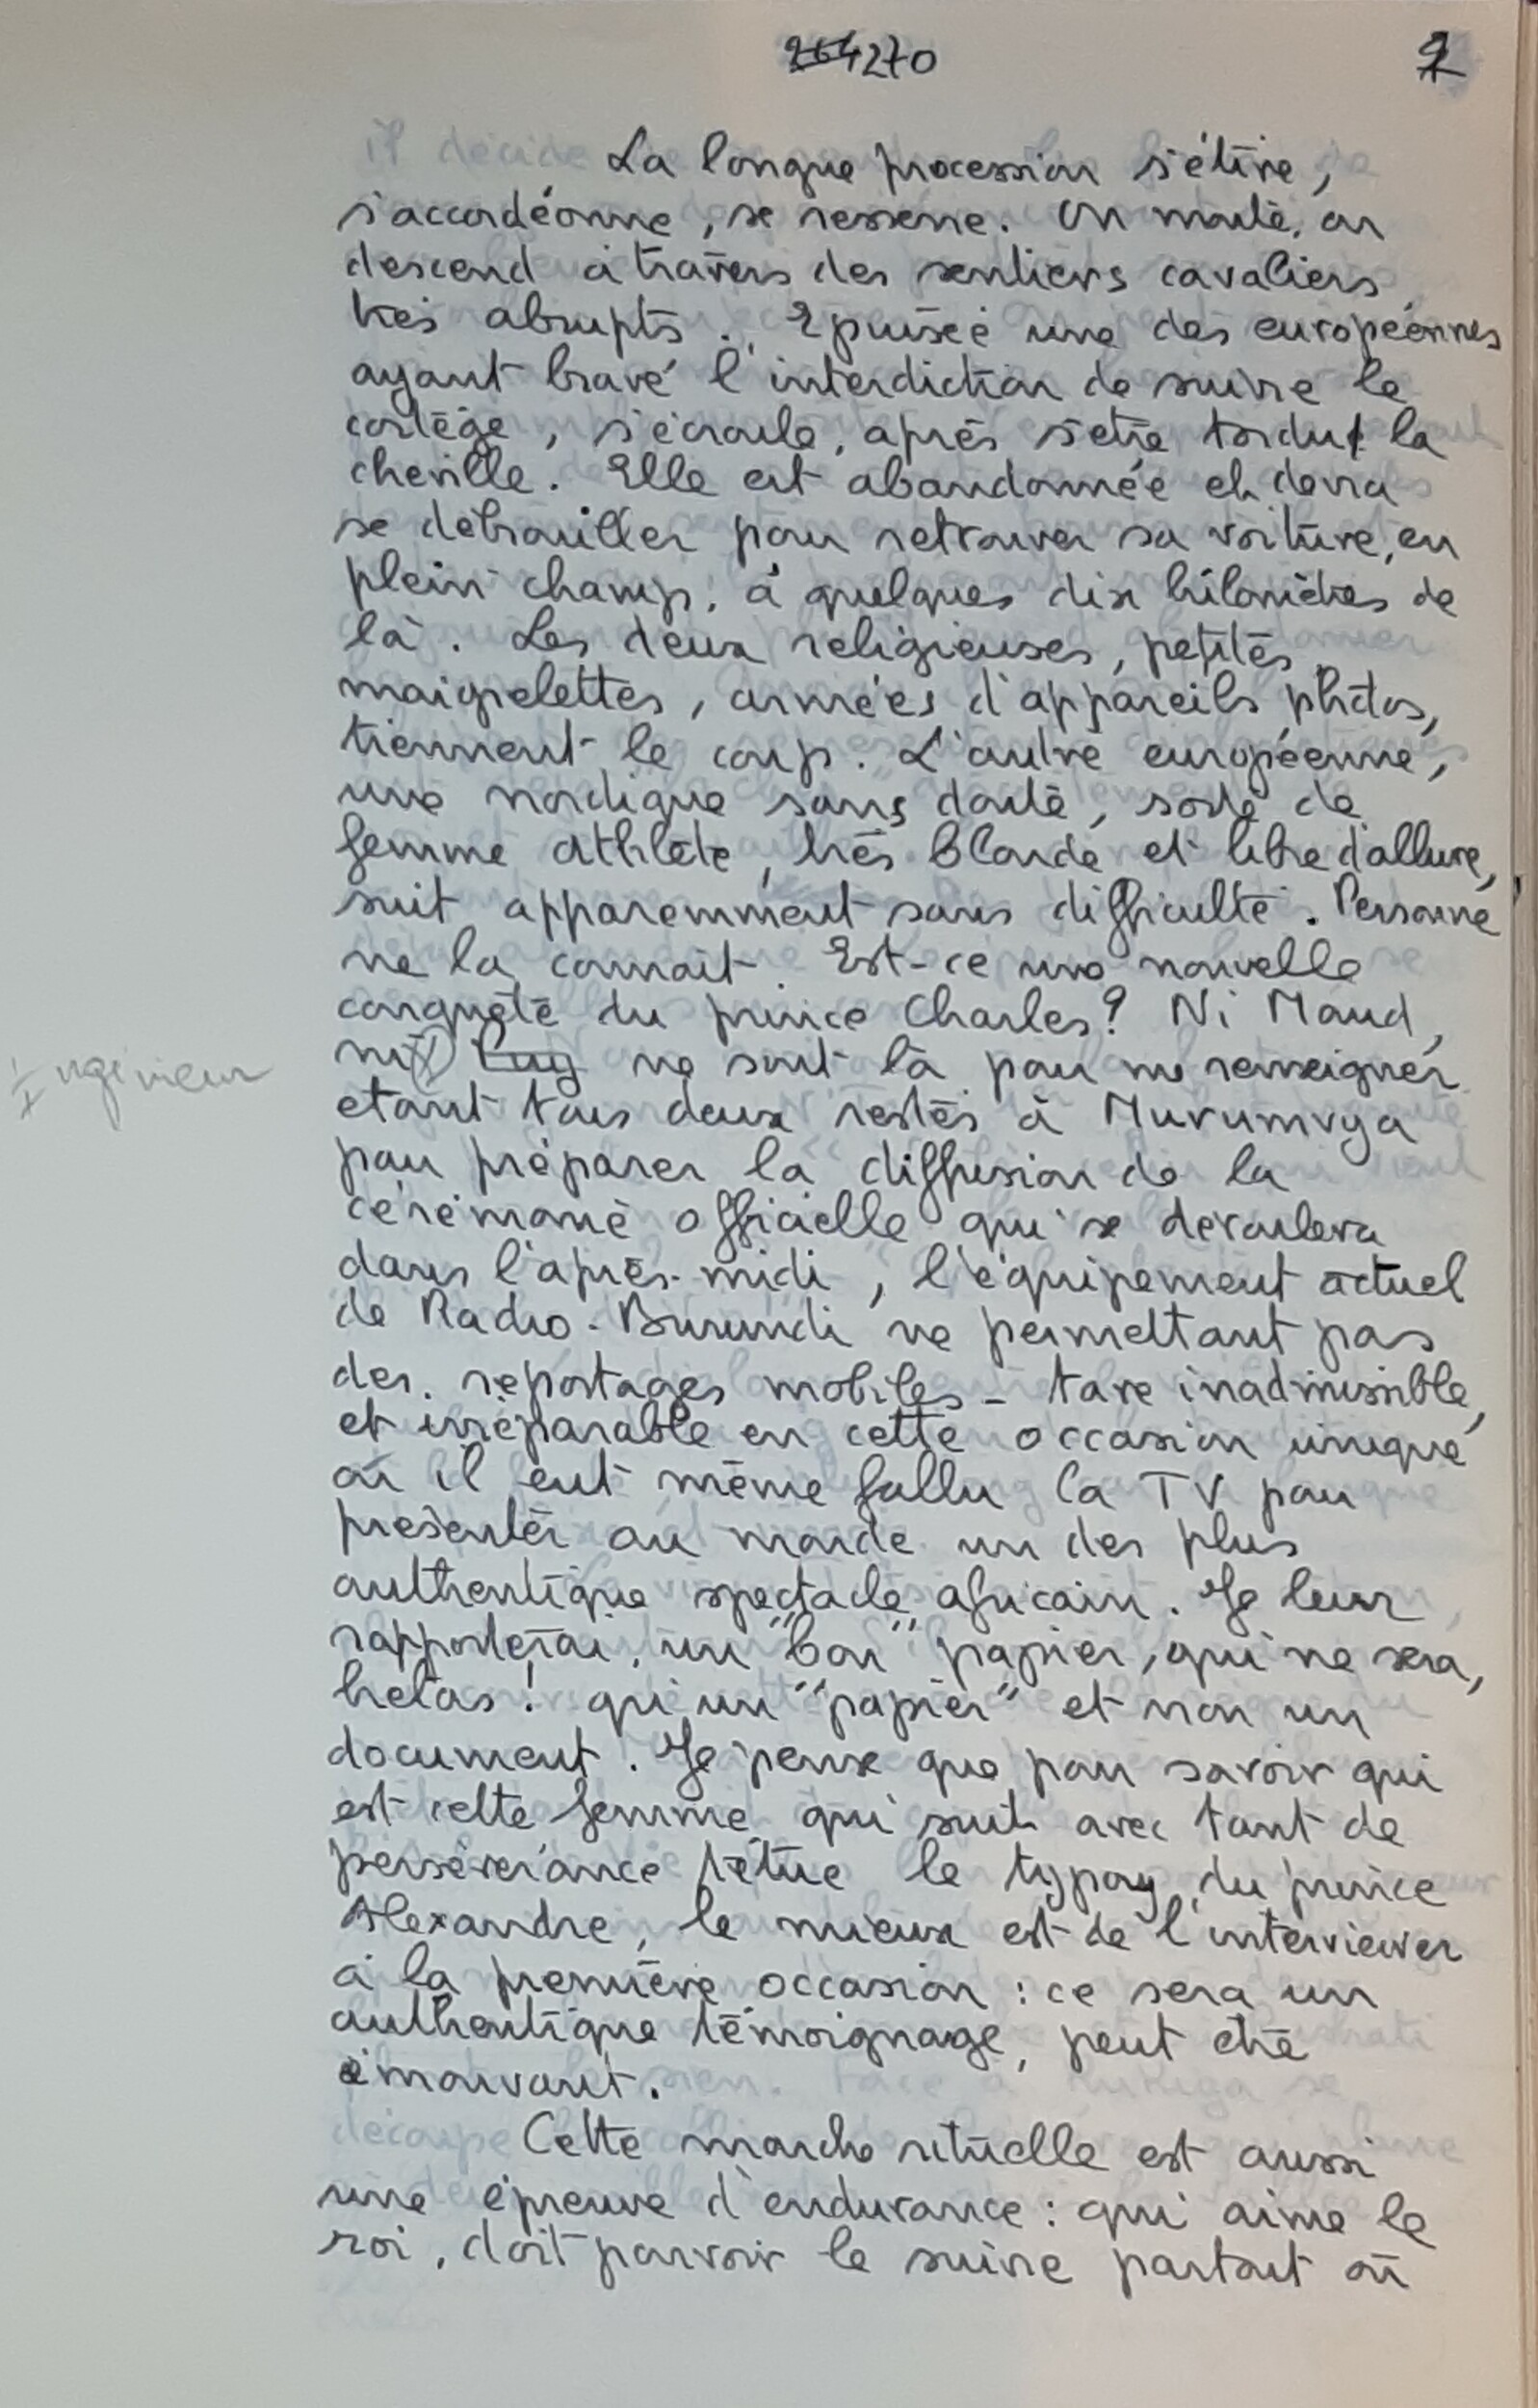 264 270
2
La longue procession s'étire,
s'accordéonne, se resserre. On monte, on
descend à travers des sentiers cavaliers,
très abrupts. Epuisée une des européennes
ayant bravé l'interdiction de suivre le
cortège, s'écroule, après s'être tordu la
cheville. Elle est abandonnée et devra
se débrouiller pour retrouver sa voiture, en
plein champ, à quelques dix kilomètres de
là. Les deux religieuses, petites,
maigrelettes, armées d'appareils photos,
tiennent le coup. L'autre européenne,
une nordique sans doute, sorte de
femme athlète, très blonde et libre d'allure,
suit apparemment sans difficulté. Personne
ne la connait. Est-ce une nouvelle
conquête du prince Charles? Ni Maud,
ni Guy ne sont là pour me renseigner
Ingénieur
etant tous deux restés à Muvumvya
pour préparer la diffusion de la
cérémonie officielle qui se déroulera
dans l'après-midi, l'équipement actuel
de Radio-Burundi ne permettant pas
des reportages mobiles - tare inadmissible,
et irréparable en cette occasion unique
où il eut même fallu la TV pour
présenter au monde un des plus
authentique spectacle africain. Je leur
rapporterai un "bon" papier, qui ne sera,
helas! qu'un "papier" et non un
document. Je pense que pour savoir qui
est cette femme qui suit avec tant de
persévérance têtue le typoy du prince
Alexandre, le mieux est de l'interviewer
à la première occasion : ce sera un
authentique témoignage, peut être
émouvant.
Cette marche rituelle est aussi
une épreuve d'endurance : qui aime le
roi, doit pouvoir le suivre partout où